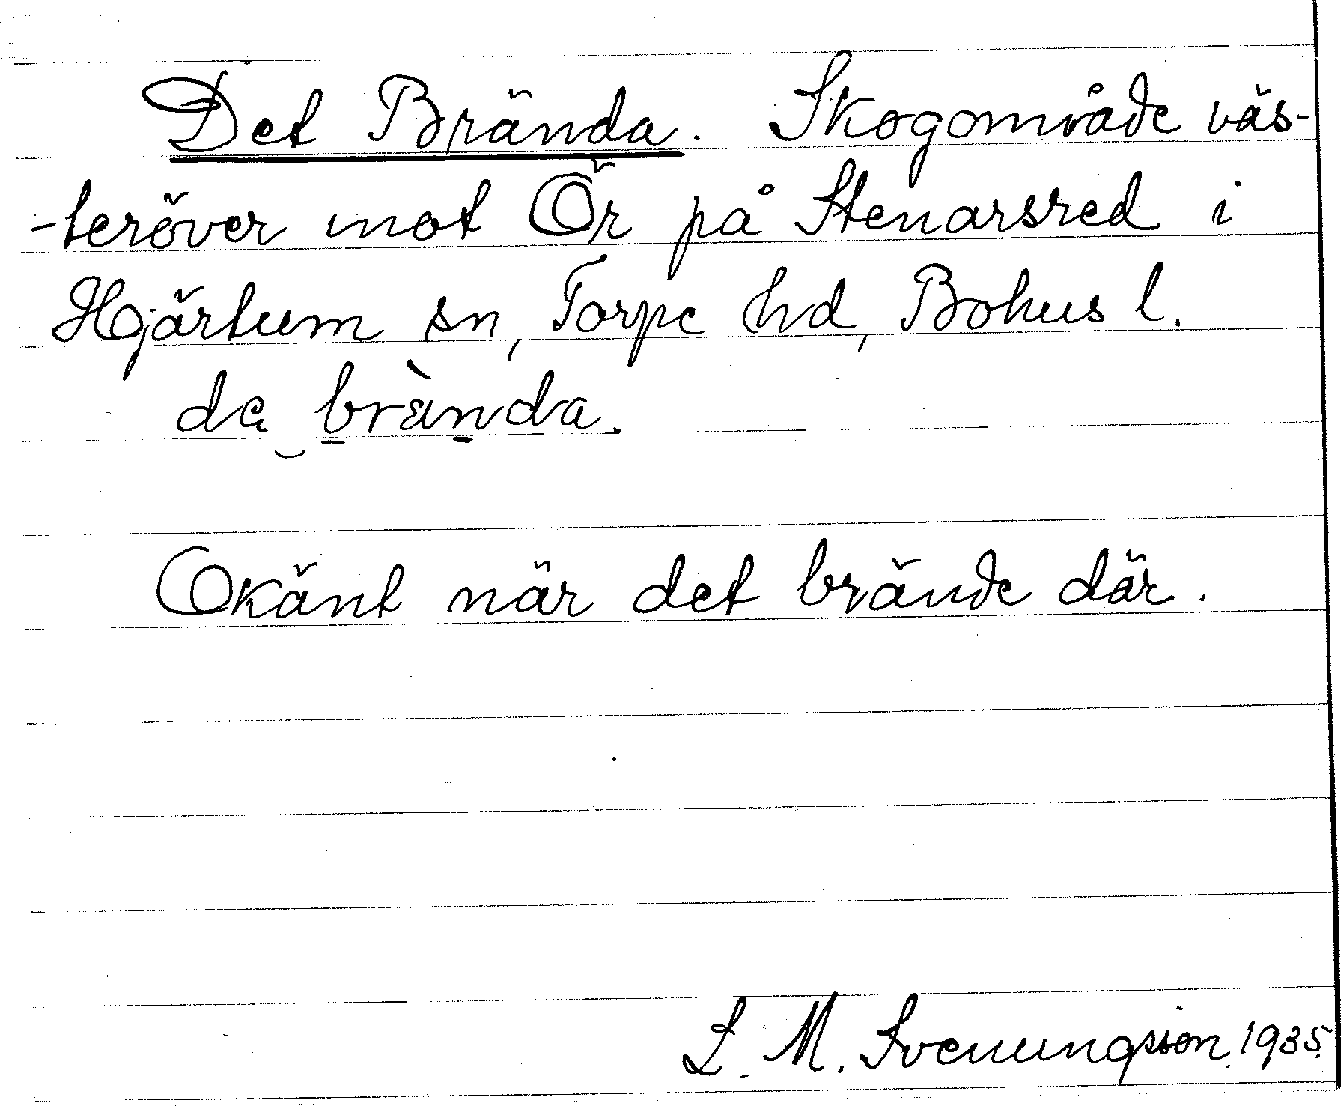 Det Brända. Skogområde väs-
-teröver mot Ör på Stenarsred i
Hjärtum sn, Torpe hd, Bohus l.
de brànda.
Okänt när det brände där.
L. M. Svenungsson. 1935.